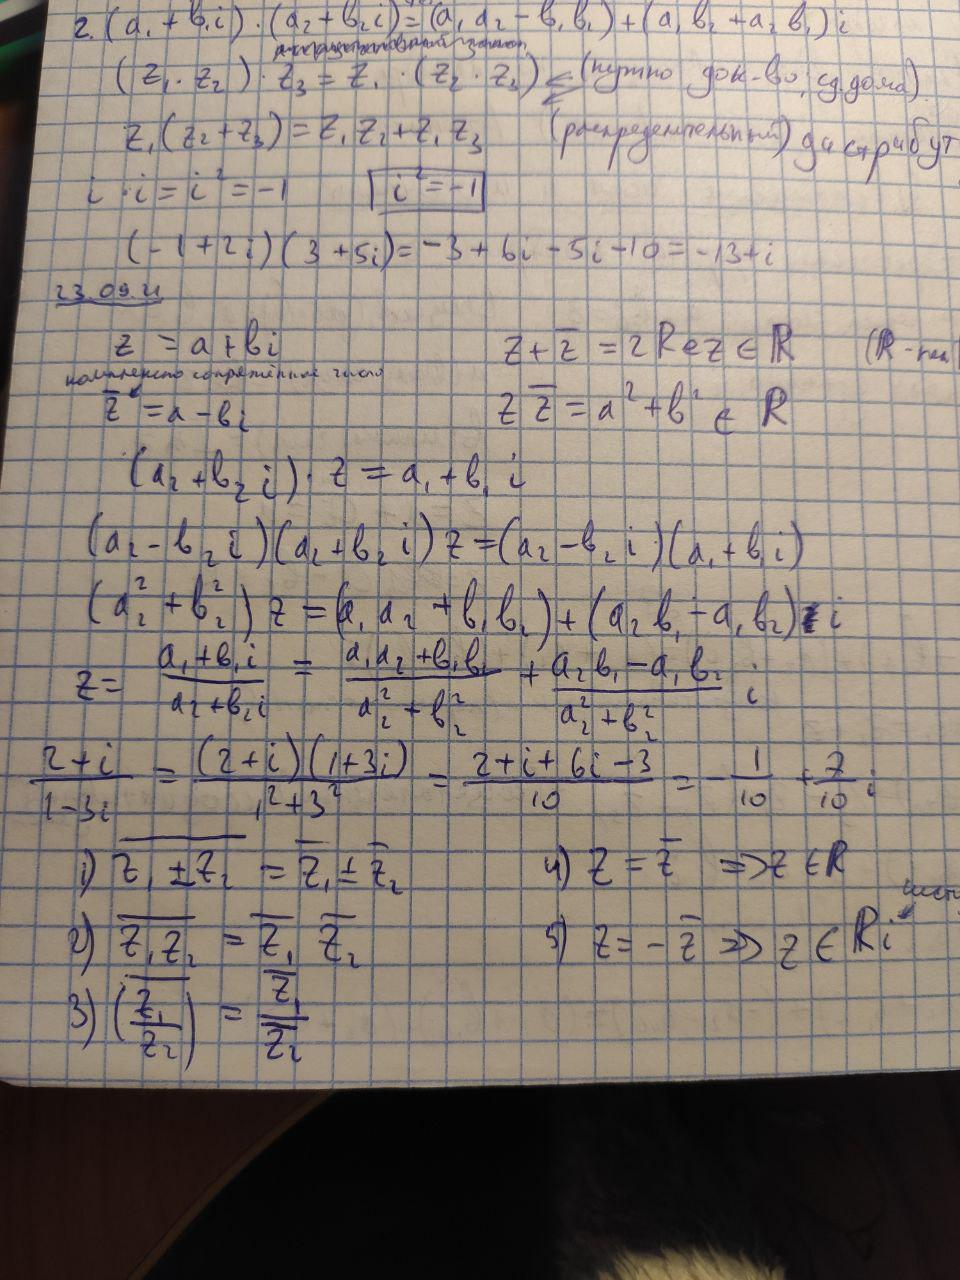 2. (a₁ + b₁i) · (a₂ + b₂i) = (a₁a₂ − b₁b₂) + (a₁b₂ + a₂b₁)i
закон
(z₁ · z₂) · z₃ = z₁ · (z₂ · z₃) ⇐ (нужно док-во, сд. дома)
z₁(z₂ + z₃) = z₁z₂ + z₁z₃ (распределительный) дистрибут
i · i = i² = −1 i² = −1
(−1 + 2i)(3 + 5i) = −3 + 6i − 5i − 10 = −13 + i
23.09.21
z = a + вi z + z̅ = 2Re z ∈ ℝ (ℝ -
комплексно сопряжённое число
z̅ = a − вi z z̅ = a² + в² ∈ ℝ
(a₂ + в₂i) · z = a₁ + в₁i
(a₂ − в₂i)(a₂ + в₂i)z = (a₂ − в₂i)(a₁ + в₁i)
(a₂² + в₂²)z = (a₁a₂ + в₁в₂) + (a₂в₁ − a₁в₂)i
z = (a₁ + в₁i)/(a₂ + в₂i) = (a₁a₂ + в₁в₂)/(a₂² + в₂²) + (a₂в₁ − a₁в₂)/(a₂² + в₂²) i
(2 + i)/(1 − 3i) = (2 + i)(1 + 3i)/(1² + 3²) = (2 + i + 6i − 3)/10 = −1/10 + 7/10 i
1) \overline{z₁ ± z₂} = z̅₁ ± z̅₂ 4) z = z̅ ⇒ z ∈ ℝ
2) \overline{z₁z₂} = z̅₁ z̅₂ 5) z = −z̅ ⇒ z ∈ ℝi
3) \overline{(z₁/z₂)} = z̅₁/z̅₂